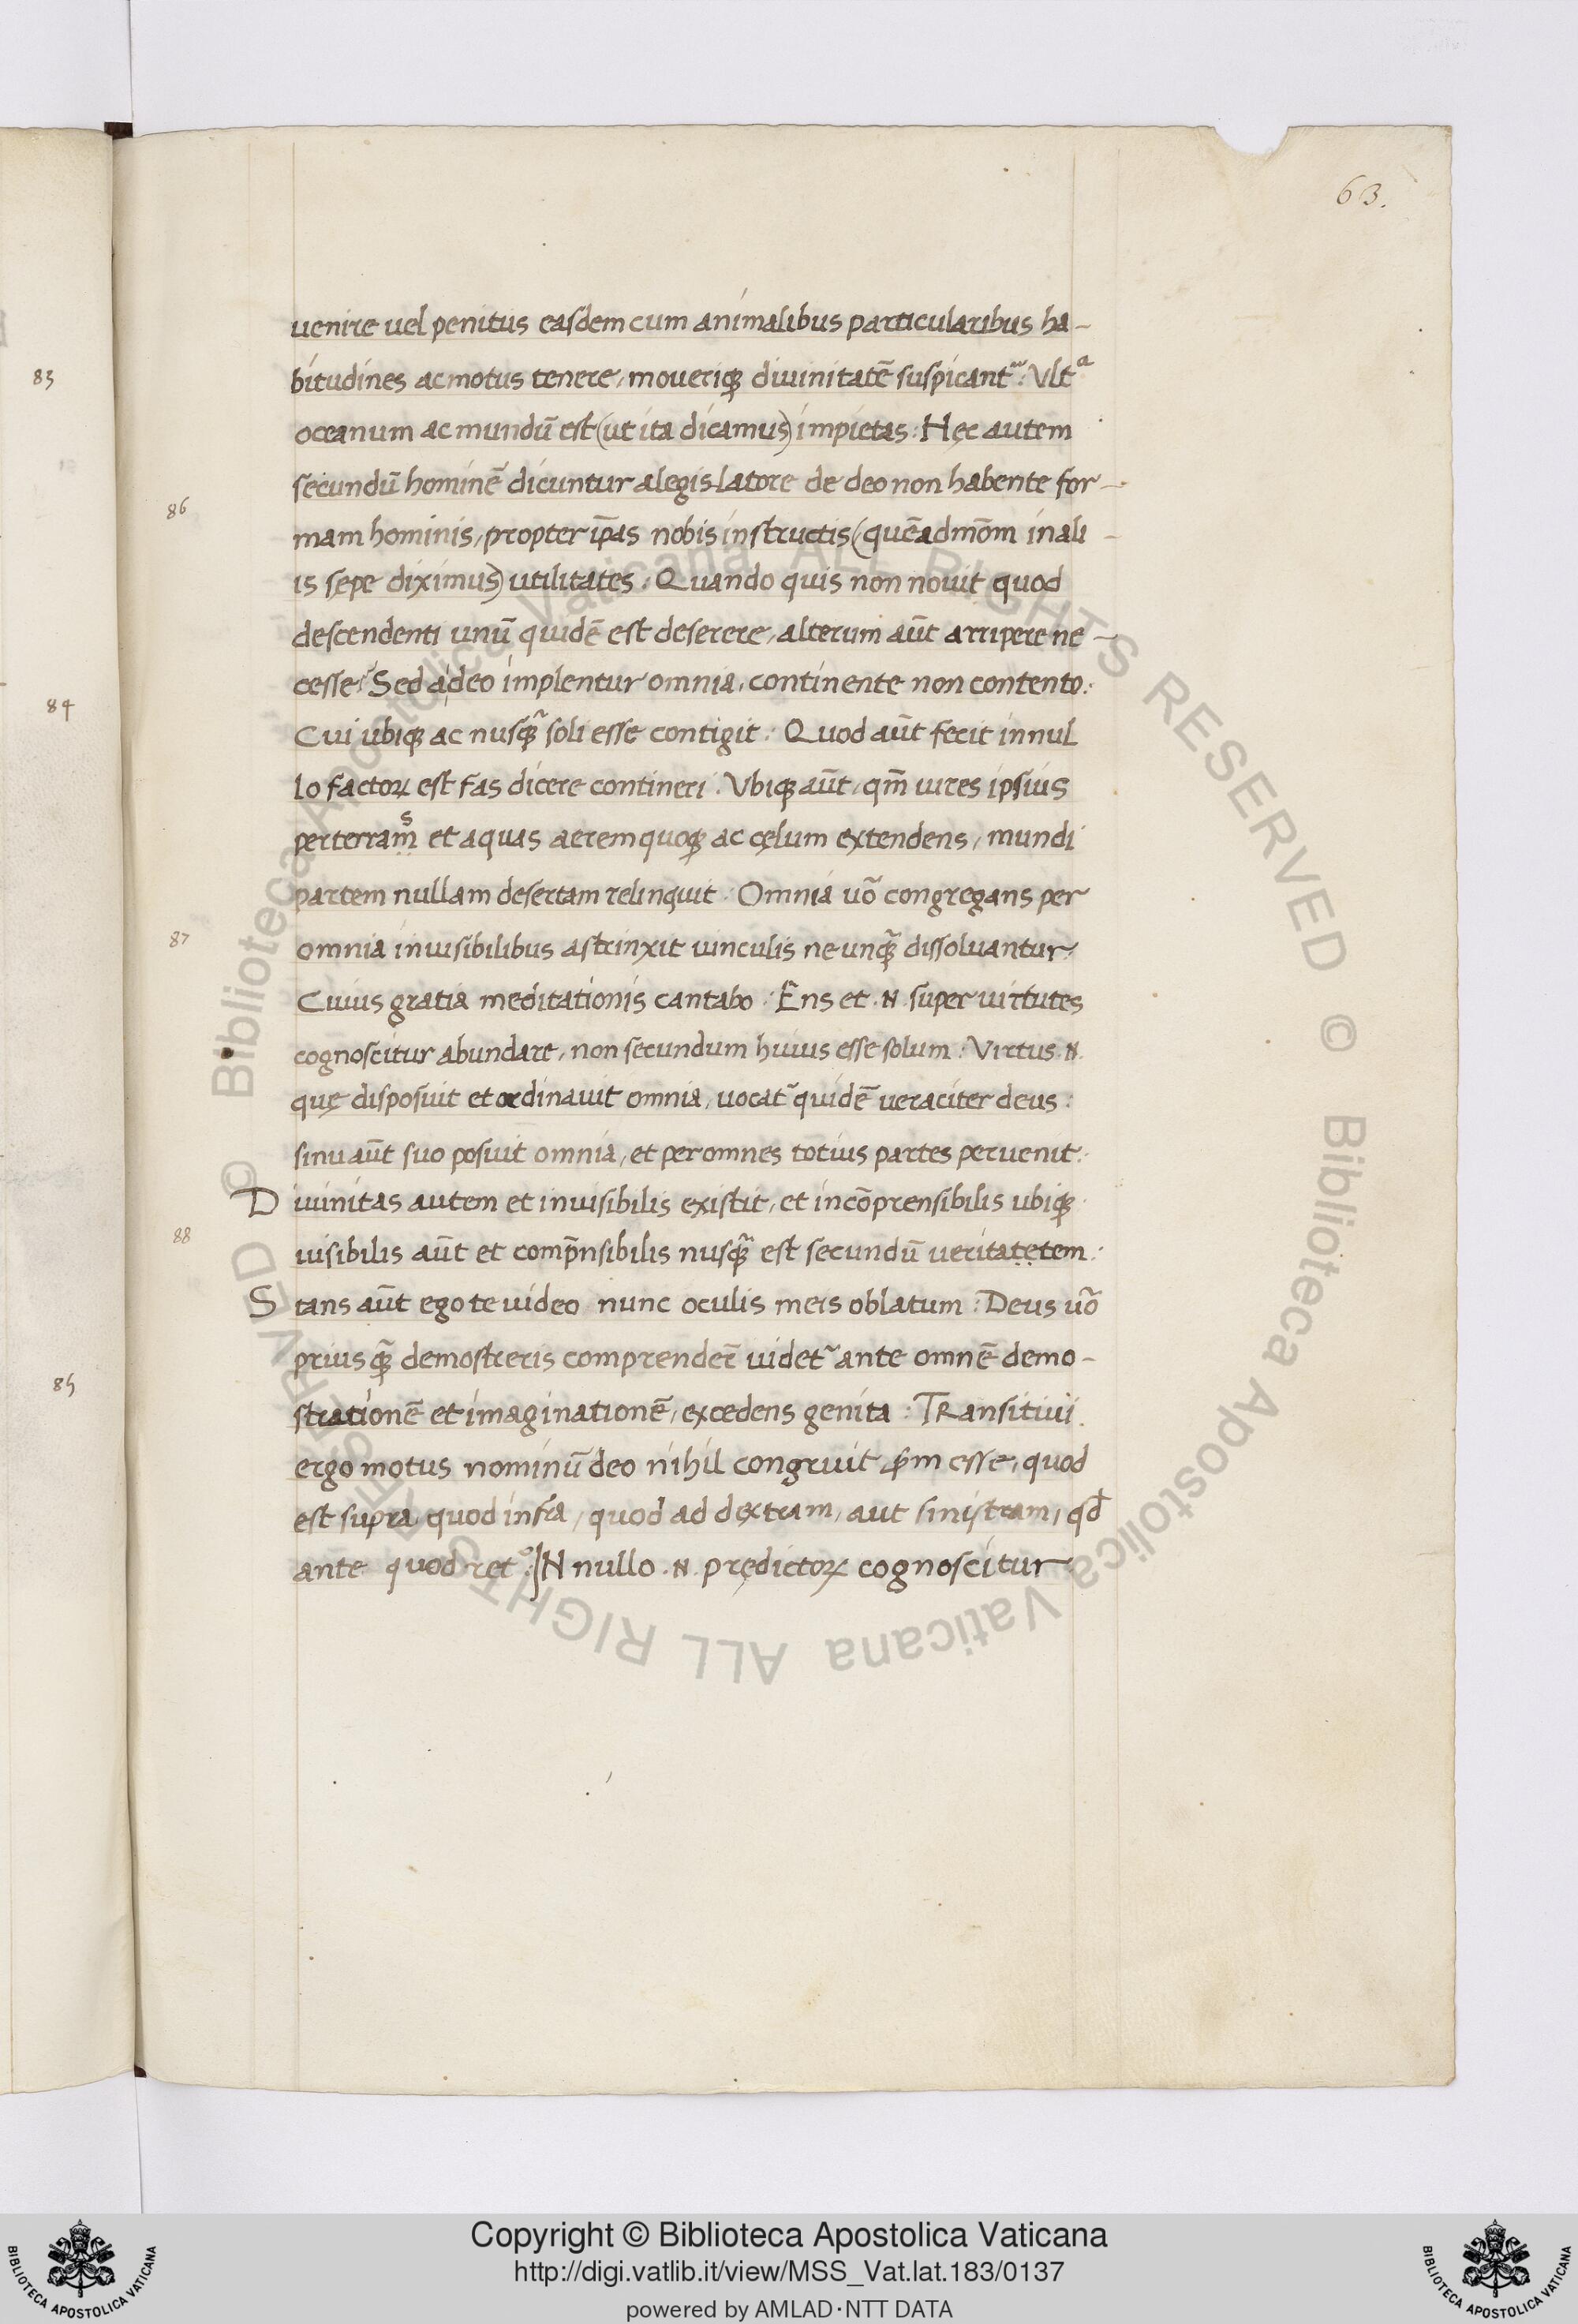 63.
uenire uel penitus easdem cum animalibus particularibus ha-
bitudines ac motus tenere, moueriq; diuinitatē suspicant᷑: Vltᵃ
oceanum ac mundū est (ut ita dicamus) impietas: Hęc autem
secundū hominē dicuntur a legis latore de deo non habente for-
mam hominis, propter ip̄as nobis instructis (quēadmōm in ali-
is sepe diximus) utilitates: Quando quis non nouit quod
descendenti unū quidē est deserere, alterum aūt arripere ne-
cesse? Sed a deo implentur omnia, continente non contento:
Cui ubiq; ac nusq̃ soli esse contigit: Quod aūt fecit in nul
lo factoꝝ est fas dicere contineri: Vbiq; aūt, qm̄ uires ipsius
per terraṃˢ et aquas aerem quoq; ac cęlum extendens, mundi
partem nullam desertam relinquit: Omnia uō congregans per
omnia inuisibilibus astrinxit uinculis ne unq̃ dissoluantur:
Cuius gratia meditationis cantabo: Ens et .N. super uirtutes
cognoscitur abundare, non secundum huius esse solum: Virtus .N.
quę disposuit et ordinauit omnia, uocat᷑ quidē ueraciter deus:
sinu aūt suo posuit omnia, et per omnes totius partes peruenit:
Diuinitas autem et inuisibilis existit, et incōprensibilis ubiq;
uisibilis aūt et comp̄nsibilis nusq̃ est secundū ueritatẹṭem:
Stans aūt ego te uideo nunc oculis meis oblatum: Deus uō
priusq̃ demostreris comprender̄ uidet᷑ ante omnē demo-
strationē et imaginationē, excedens genita: TRansitiui
ergo motus nominū deo nihil congruit, p̄m esse, quod
est supra quod infra, quod ad dextram, aut sinistram, qd̄
ante quod ret°: IN nullo .N. prędictoꝝ cognoscitur
86
87
88
83
84
85
© Biblioteca Apostolica Vaticana ALL RIGHTS RESERVED © Biblioteca Apostolica Vaticana ALL RIGHTS RESERVED
Copyright © Biblioteca Apostolica Vaticana
http://digi.vatlib.it/view/MSS_Vat.lat.183/0137
powered by AMLAD·NTT DATA
BIBLIOTECA APOSTOLICA VATICANA
BIBLIOTECA APOSTOLICA VATICANA